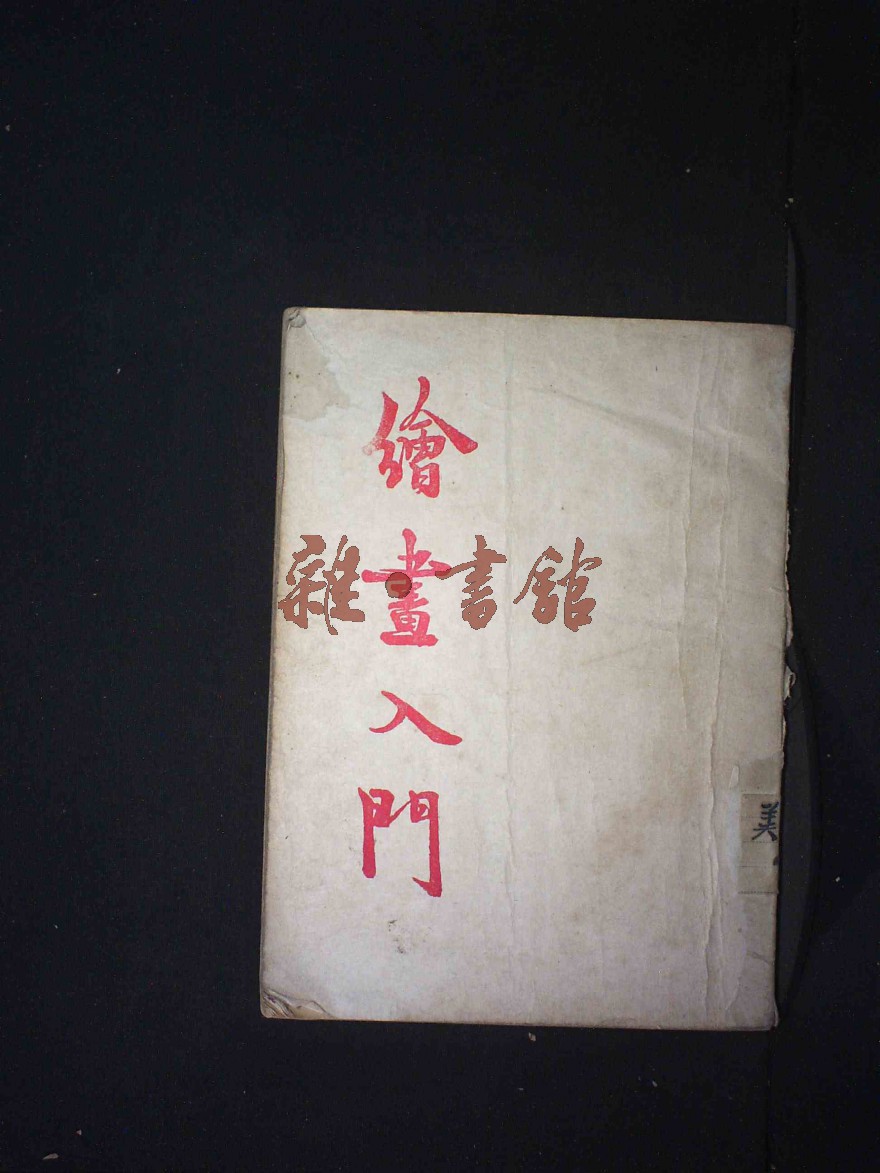 繪畫入門
雜·書館
美